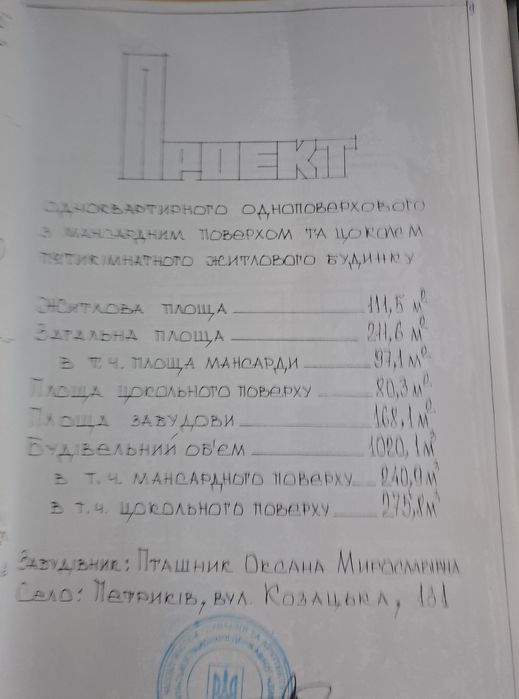 Проект
одноквартирного одноповерхового
з мансардним поверхом та цоколем
пятикімнатного житлового будинку
Житлова площа 111,5 м²
Загальна площа 211,6 м²
в т.ч. площа мансарди 97,1 м²
Площа цокольного поверху 80,3 м²
Площа забудови 168,1 м²
Будівельний об'єм 1020,1 м³
в т.ч. мансардного поверху 240,9 м³
в т.ч. цокольного поверху 275,8 м³
Забудівник: Пташник Оксана Мирославівна
Село: Петриків, вул. Козацька, 131